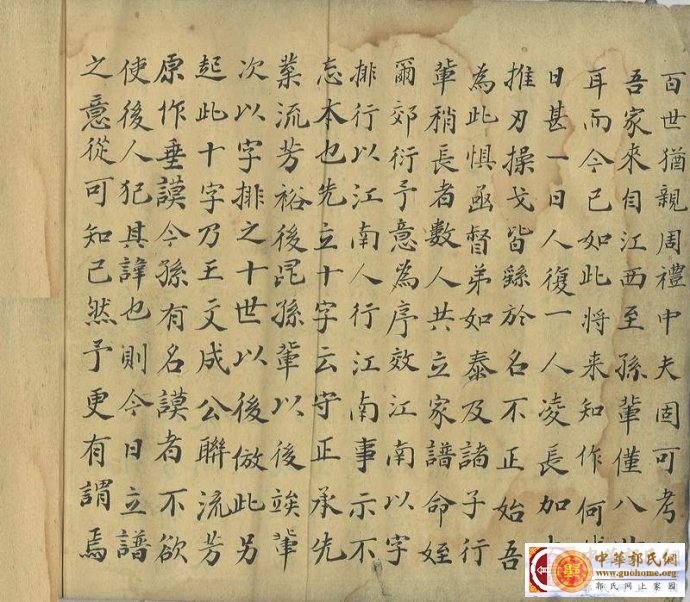 百世猶親周禮中夫固可考
吾家來自江西至孫輩僅八
耳而今已如此将来知作何
日甚一日人復一人凌長加
推刃操戈皆繇於名不正始吾
為此懼亟督弟如泰及諸子行
輩稍長者數人共立家譜命姪
爾郊衍予意為序效江南以字
排行以江南人行江南事示不
忘本也先立十字云守正承先
業流芳裕後昆孫輩以後竢輩
次以字排之十世以後倣此另
起此十字乃王文成公聯流芳
原作垂謨今孫有名謨者不欲
使後人犯其諱也則今日立譜
之意從可知已然予更有謂焉
中華郭氏網
www.guohome.org
郭氏网上家園